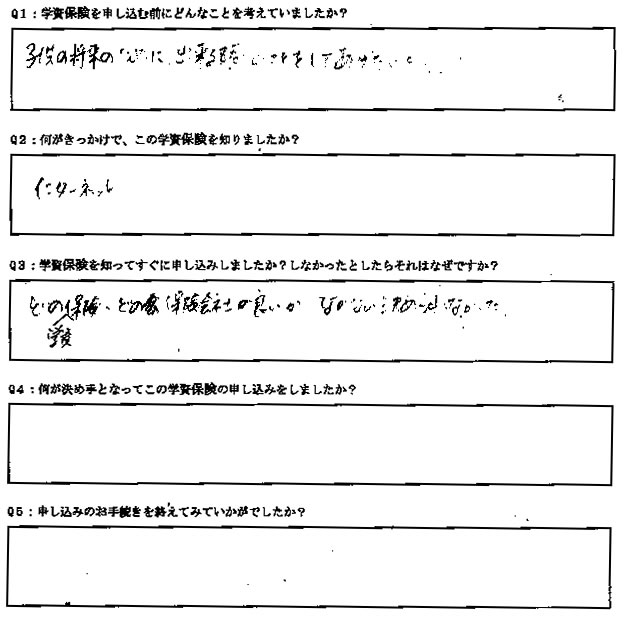 Q1：学資保険を申し込む前にどんなことを考えていましたか？
子供の将来の に、出来る してあげたい。
Q2：何がきっかけで、この学資保険を知りましたか？
インターネット
Q3：学資保険を知ってすぐに申し込みしましたか？しなかったとしたらそれはなぜですか？
どの保険、どの 保険会社が良いか なかなか決められなかった。
学資
Q4：何が決め手となってこの学資保険の申し込みをしましたか？
Q5：申し込みのお手続きを終えてみていかがでしたか？